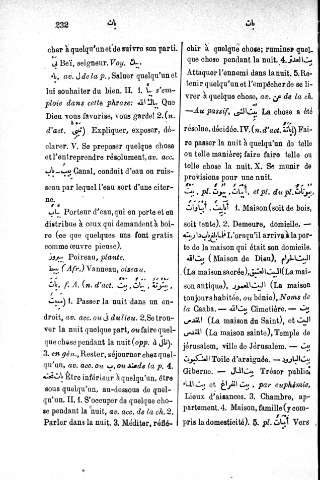 232 بات بات
cher à quelqu'un et de suivre son parti.
بىّ Beï, seigneur. Voy.
av. de la p., Saluer quelqu'un et
lui souhaiter du bien. II. 1. s'em-
ploie dans cette phrase: بيّاك الله Que
Dieu vous favorise, vous garde! 2. (n.
d'act. ) Expliquer, exposer, dé-
clarer. V. Se preposer quelque chose
et l'entreprendre résolument, av. acc.
Canal, conduit d'eau ou ruis-
seau par lequel l'eau sort d'une citer-
ne.
Porteur d'eau, qui en porte et en
distribue à ceux qui demandent à boi-
re (ce que quelques uns font gratis
comme œuvre pieuse).
Poireau, plante.
(Afr.) Vanneau, oiseau.
بات f. A. (n. d'act. بيت, بيات, بيتوتة,
مبيت) 1. Passer la nuit dans un en-
droit, av. acc. ou فى du lieu. 2. Se trou-
ver la nuit quelque part, ou faire quel-
que chose pendant la nuit (opp. à ظل).
3. en gén., Rester, séjourner chez quel-
qu'un, av. acc. ou ب, ou عند de la p. 4.
Être inférieur à quelqu'un, être
sous quelqu'un, au-dessous de quel-
qu'un. II. 1. S'occuper de quelque cho-
se pendant la nuit, av. acc. de la ch. 2.
Parler dans la nuit. 3. Méditer, réflé-
chir à quelque chose; ruminer quel-
que chose pendant la nuit. 4. بيت العدو
Attaquer l'ennemi dans la nuit. 5. Re-
tenir quelqu'un et l'empêcher de se li-
vrer à quelque chose, av. عن de la ch.
—Au passif, بيت الشى La chose a été
résolue, décidée. IV. (n. d'act. إباتة) Fai-
re passer la nuit à quelqu'un de telle
ou telle manière; faire faire telle ou
telle chose la nuit. X. Se munir de
provisions pour une nuit.
بيت pl. أبيات, بيوت, et pl. du pl. بيوتات,
أباييت, أبياوات 1. Maison (soit de bois,
soit tente). 2. Demeure, domicile. —
L'orsqu'il arriva à la por-
te de la maison qui était son domicile.
— بيت الله (Maison de Dieu), البيت الحرام
(La maison sacrée), البيت العتيق (La mai-
son antique), البيت المعمور (La maison
toujours habitée, ou bénie), Noms de
la Caaba. — بيت الله Cimetière. — بيت
المقدس (La maison du Saint), البيت المقدس
(La maison sainte), Temple de
Jérusalem, ville de Jérusalem. — بيت
العنكبوت Toile d'araignée. — بيت البارود
Giberne. — بيت المال Trésor public.
— بيت الماء, بيت الفراغ et par euphémie,
Lieux d'aisances. 3. Chambre, ap-
partement. 4. Maison, famille (y com-
pris la domesticité). 5. pl. أبيات Vers